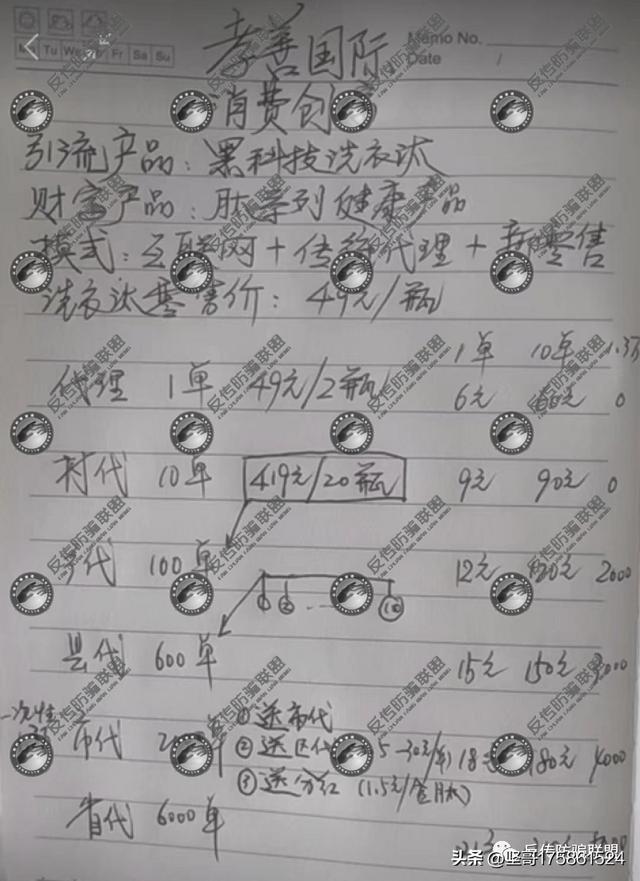 Memo No.
Mo Tu We Fr Sa Su
Date /
孝善国际
消费创
引流产品：黑科技洗衣汰
财富产品：肽系列健康产品
模式：互联网+传统代理+新零售
洗衣汰零售价：49元/瓶
1单 10单 1.3万
代理 1单 49元/2瓶 6元 60元 0
村代 10单 419元/20瓶 9元 90元 0
乡代 100单 12元 120元 2000
① ② ... ⑩
县代 600单 15元 150元 3000
一次性
市代 ①送市代
②送区代 5-30元/单 18元 180元 4000
③送分红 (1.5元/盒肽)
省代 6000单
反传防骗联盟
头条 @坚哥175861524